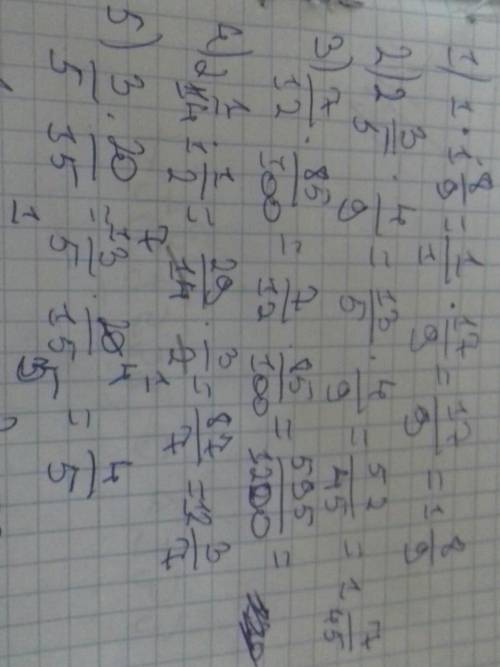 1) 1 · 1 8/9 = 1/1 · 17/9 = 17/9 = 1 8/9
2) 2 3/5 · 4/9 = 13/5 · 4/9 = 52/45 = 1 7/45
3) 7/12 · 85/100 = 7/12 · 85/100 = 595/1200 =
4) 2 1/14 : 1/2 = 29/14 · 3/1 = 87/7 = 12 3/7
5) 3/5 · 20/15 = 13/5 · 20/15 = 4/5